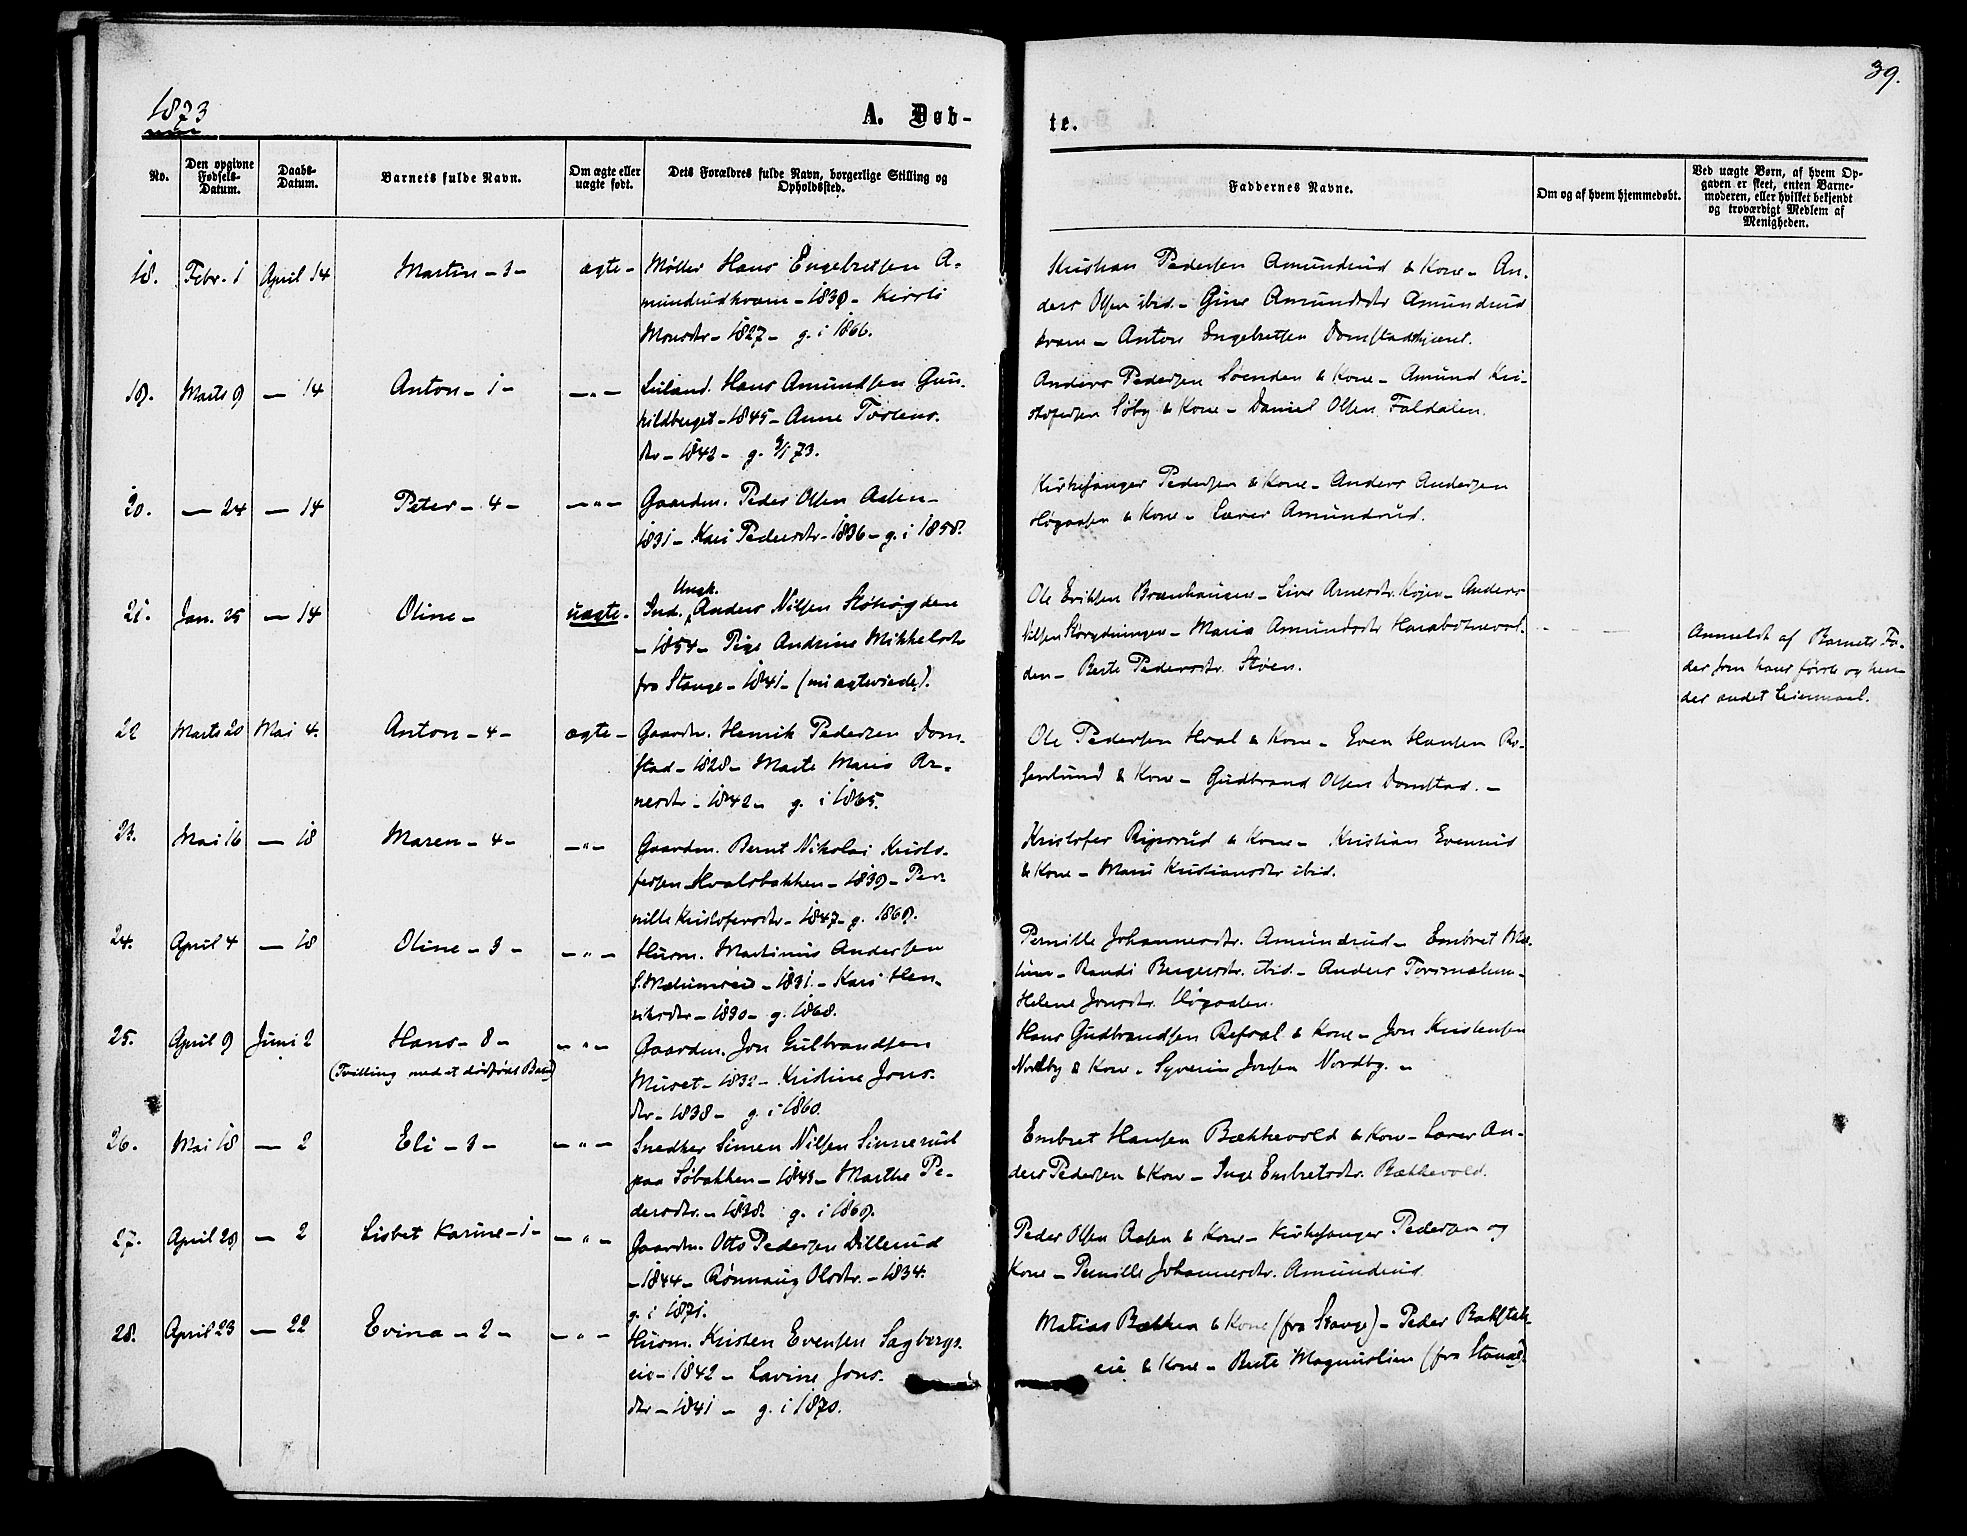 1873
39.
A. Døb-
te.
No.
Den opgivne
Fødsels-
Datum.
Daabs-
Datum.
Barnets fulde Navn.
Om ægte eller
uægte født.
Dets Forældres fulde Navn, borgerlige Stilling og
Opholdssted.
Faddernes Navne.
Om og af hvem hjemmedøbt.
Ved uægte Børn, af hvem Op-
gaven er skeet, enten Barne-
moderen, eller hvilket bekjendt
og troværdigt Medlem af
Menigheden.
18. Febr. 1 April 14 Martin - 3 - ægte - Møller Hans Engebretsen A-
mundrudkvern - 1839 - Kirsti
Monsdtr - 1827 - g. i 1866.
Kristian Pedersen Amundrud & Kone - An-
ders Olsen ibid. - Gine Amundsdtr Amundrud
kvern - Anton Engebretsen
19. Marts 9 — 14 Anton - 1 - —„— Leiland. Hans Amundsen Gun-
hildberget - 1845 - Anne Torsens-
dtr - 1842 - g. 9/1 73.
Anders Pedersen Søenden & Kone - Amund Kri-
stofersen Søby & Kone - Daniel Olsen Faldalen.
20. — 24 — 14 Peter - 4 - —„— Gaardm. Peder Olsen Aasen -
1831 - Kari Pedersdtr - 1836 - g. i 1858.
Kirkesanger Pedersen & Kone - Anders Andersen
Høgaasen & Kone - Lærer Amundrud.
21. Jan. 25 — 14 Oline - uægte - Ungk.
Ind. Anders Nilsen
- 1854 - Pige Andrine Mikkelsdtr
fra Stange - 1841 - (ui ægteviede).
Ole Eriksen - Live Arnesdtr. - Anders
Nilsen - Maria Amundsdtr
den - Berte Pedersdtr. Støen.
Anmeldt af Barnets Fa-
der som hans første og hen-
des andet Leiermaal.
22 Marts 20 Mai 4. Anton - 4 - ægte - Gaardm. Henrik Pedersen Dom-
stad - 1828 - Marte Maria Ar-
nesdtr - 1842 - g. i 1865.
Ole Pedersen Hval & Kone - Even Hansen Ro-
senlund & Kone - Gudbrand Olsen Domstad. -
23. Mai 16 — 18 Maren - 4 - —„— Gaardm. Bernt Nikolai Kristo-
fersen Hvalsbakken - 1839 - Per-
nille Kristofersdtr - 1847 - g. 1869.
Kristofer & Kone - Kristian Evenrud
& Kone - Mari Kristiansdtr ibid.
24. April 4 — 18 Oline - 3 - —„— Husm. Martinus Andersen
- 1831. - Kari Hen-
riksdtr - 1830 - g. 1868.
Pernille Johannesdtr. Amundrud - Embret
- Randi Bergersdtr. ibid. - Anders
Helene Jonsdtr. Høgaasen.
25. April 9 Juni 2 Hans - 8 - —„— Gaardm. Jon Gulbrandsen
(Tvilling med et dødfødt Barn)
Muset - 1832 - Kristine Jons-
dtr - 1838 - g. i 1860.
Hans Gudbrandsen Refsal & Kone - Jon Kristensen
Nordby & Kone - Syverin Jonsen Nordby. -
26. Mai 18 — 2 Eli - 3 - —„— Snedker Simen Nilsen Sinnerud
paa Søbakken - 1843 - Marthe Pe-
dersdtr. - 1838. g. i 1869.
Embret Hansen Bækkevold & Kone - Lærer An-
ders Pedersen & Kone - Inge Embretsdtr. Bækkevold.
27. April 29 — 2 Lisbet Karine - 1 - —„— Gaardm. Otto Pedersen Dillerud
- 1844 - Rønnaug Olsdtr. - 1834.
g. i 1871.
Peder Olsen Aasen & Kone - Kirkesanger Pedersen og
Kone - Pernille Johannesdtr. Amundrud.
28. April 23 — 22 Evina - 2 - —„— Husm. Kristen Evensen Sagbergs-
eie - 1842 - Lavine Jons-
dtr - 1841 - g. i 1870.
Matias Bækken & Kone (fra Stange) - Peder
eie & Kone - Berte Magnuslien (fra Stange).